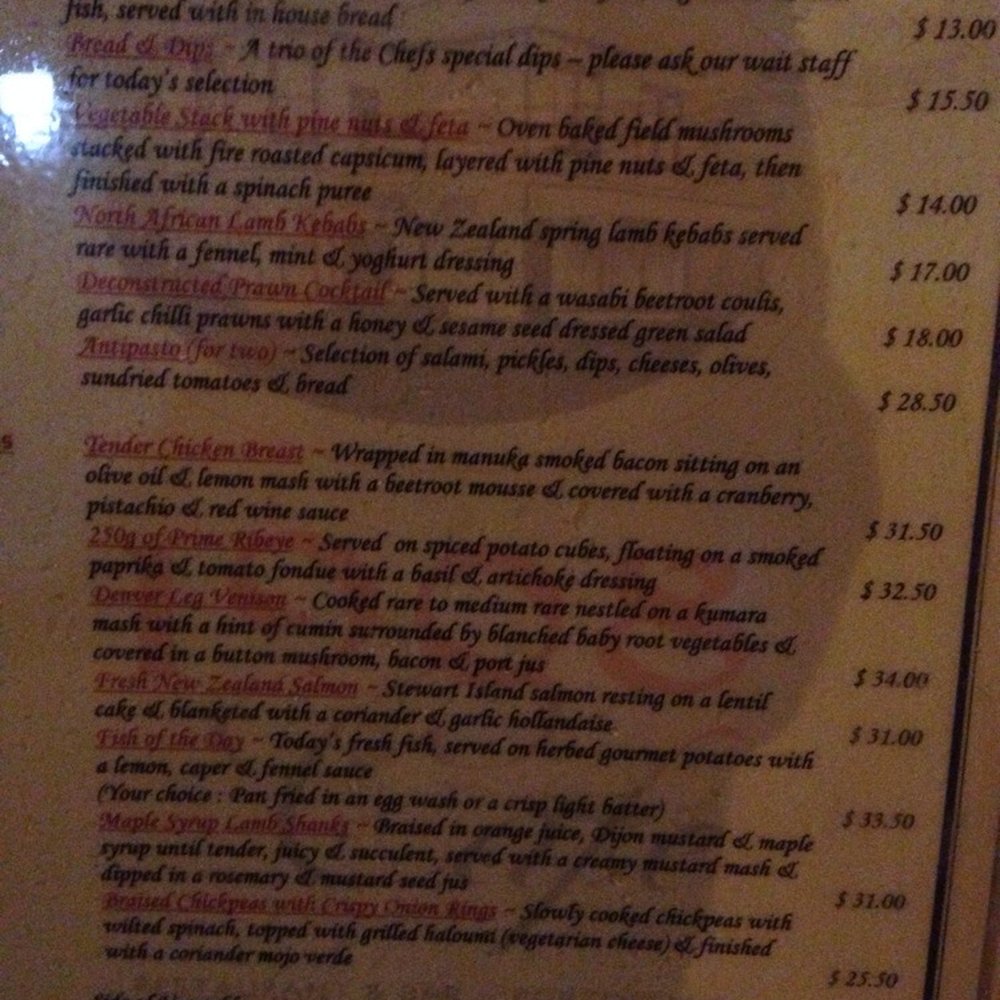 fish, served with in house bread
$ 13.00
Bread & Dips ~ A trio of the Chefs special dips – please ask our wait staff
for today's selection
$ 15.50
Vegetable Stack with pine nuts & feta ~ Oven baked field mushrooms
stacked with fire roasted capsicum, layered with pine nuts & feta, then
finished with a spinach puree
$ 14.00
North African Lamb Kebabs ~ New Zealand spring lamb kebabs served
rare with a fennel, mint & yoghurt dressing
$ 17.00
Deconstructed Prawn Cocktail ~ Served with a wasabi beetroot coulis,
garlic chilli prawns with a honey & sesame seed dressed green salad
$ 18.00
Antipasto (for two) ~ Selection of salami, pickles, dips, cheeses, olives,
sundried tomatoes & bread
$ 28.50
s
Tender Chicken Breast ~ Wrapped in manuka smoked bacon sitting on an
olive oil & lemon mash with a beetroot mousse & covered with a cranberry,
pistachio & red wine sauce
$ 31.50
250g of Prime Ribeye ~ Served on spiced potato cubes, floating on a smoked
paprika & tomato fondue with a basil & artichoke dressing
$ 32.50
Denver Leg Venison ~ Cooked rare to medium rare nestled on a kumara
mash with a hint of cumin surrounded by blanched baby root vegetables &
covered in a button mushroom, bacon & port jus
$ 34.00
Fresh New Zealand Salmon ~ Stewart Island salmon resting on a lentil
cake & blanketed with a coriander & garlic hollandaise
$ 31.00
Fish of the Day ~ Today's fresh fish, served on herbed gourmet potatoes with
a lemon, caper & fennel sauce
(Your choice : Pan fried in an egg wash or a crisp light batter)
$ 33.50
Maple Syrup Lamb Shanks ~ Braised in orange juice, Dijon mustard & maple
syrup until tender, juicy & succulent, served with a creamy mustard mash &
dipped in a rosemary & mustard seed jus
$ 31.00
Braised Chickpeas with Crispy Onion Rings ~ Slowly cooked chickpeas with
wilted spinach, topped with grilled haloumi (vegetarian cheese) & finished
with a coriander mojo verde
$ 25.50